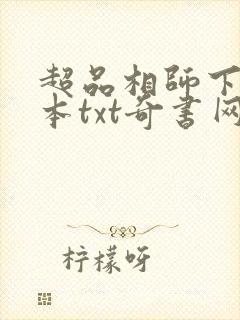 超品相師下
本txt奇書网
柠檬呀